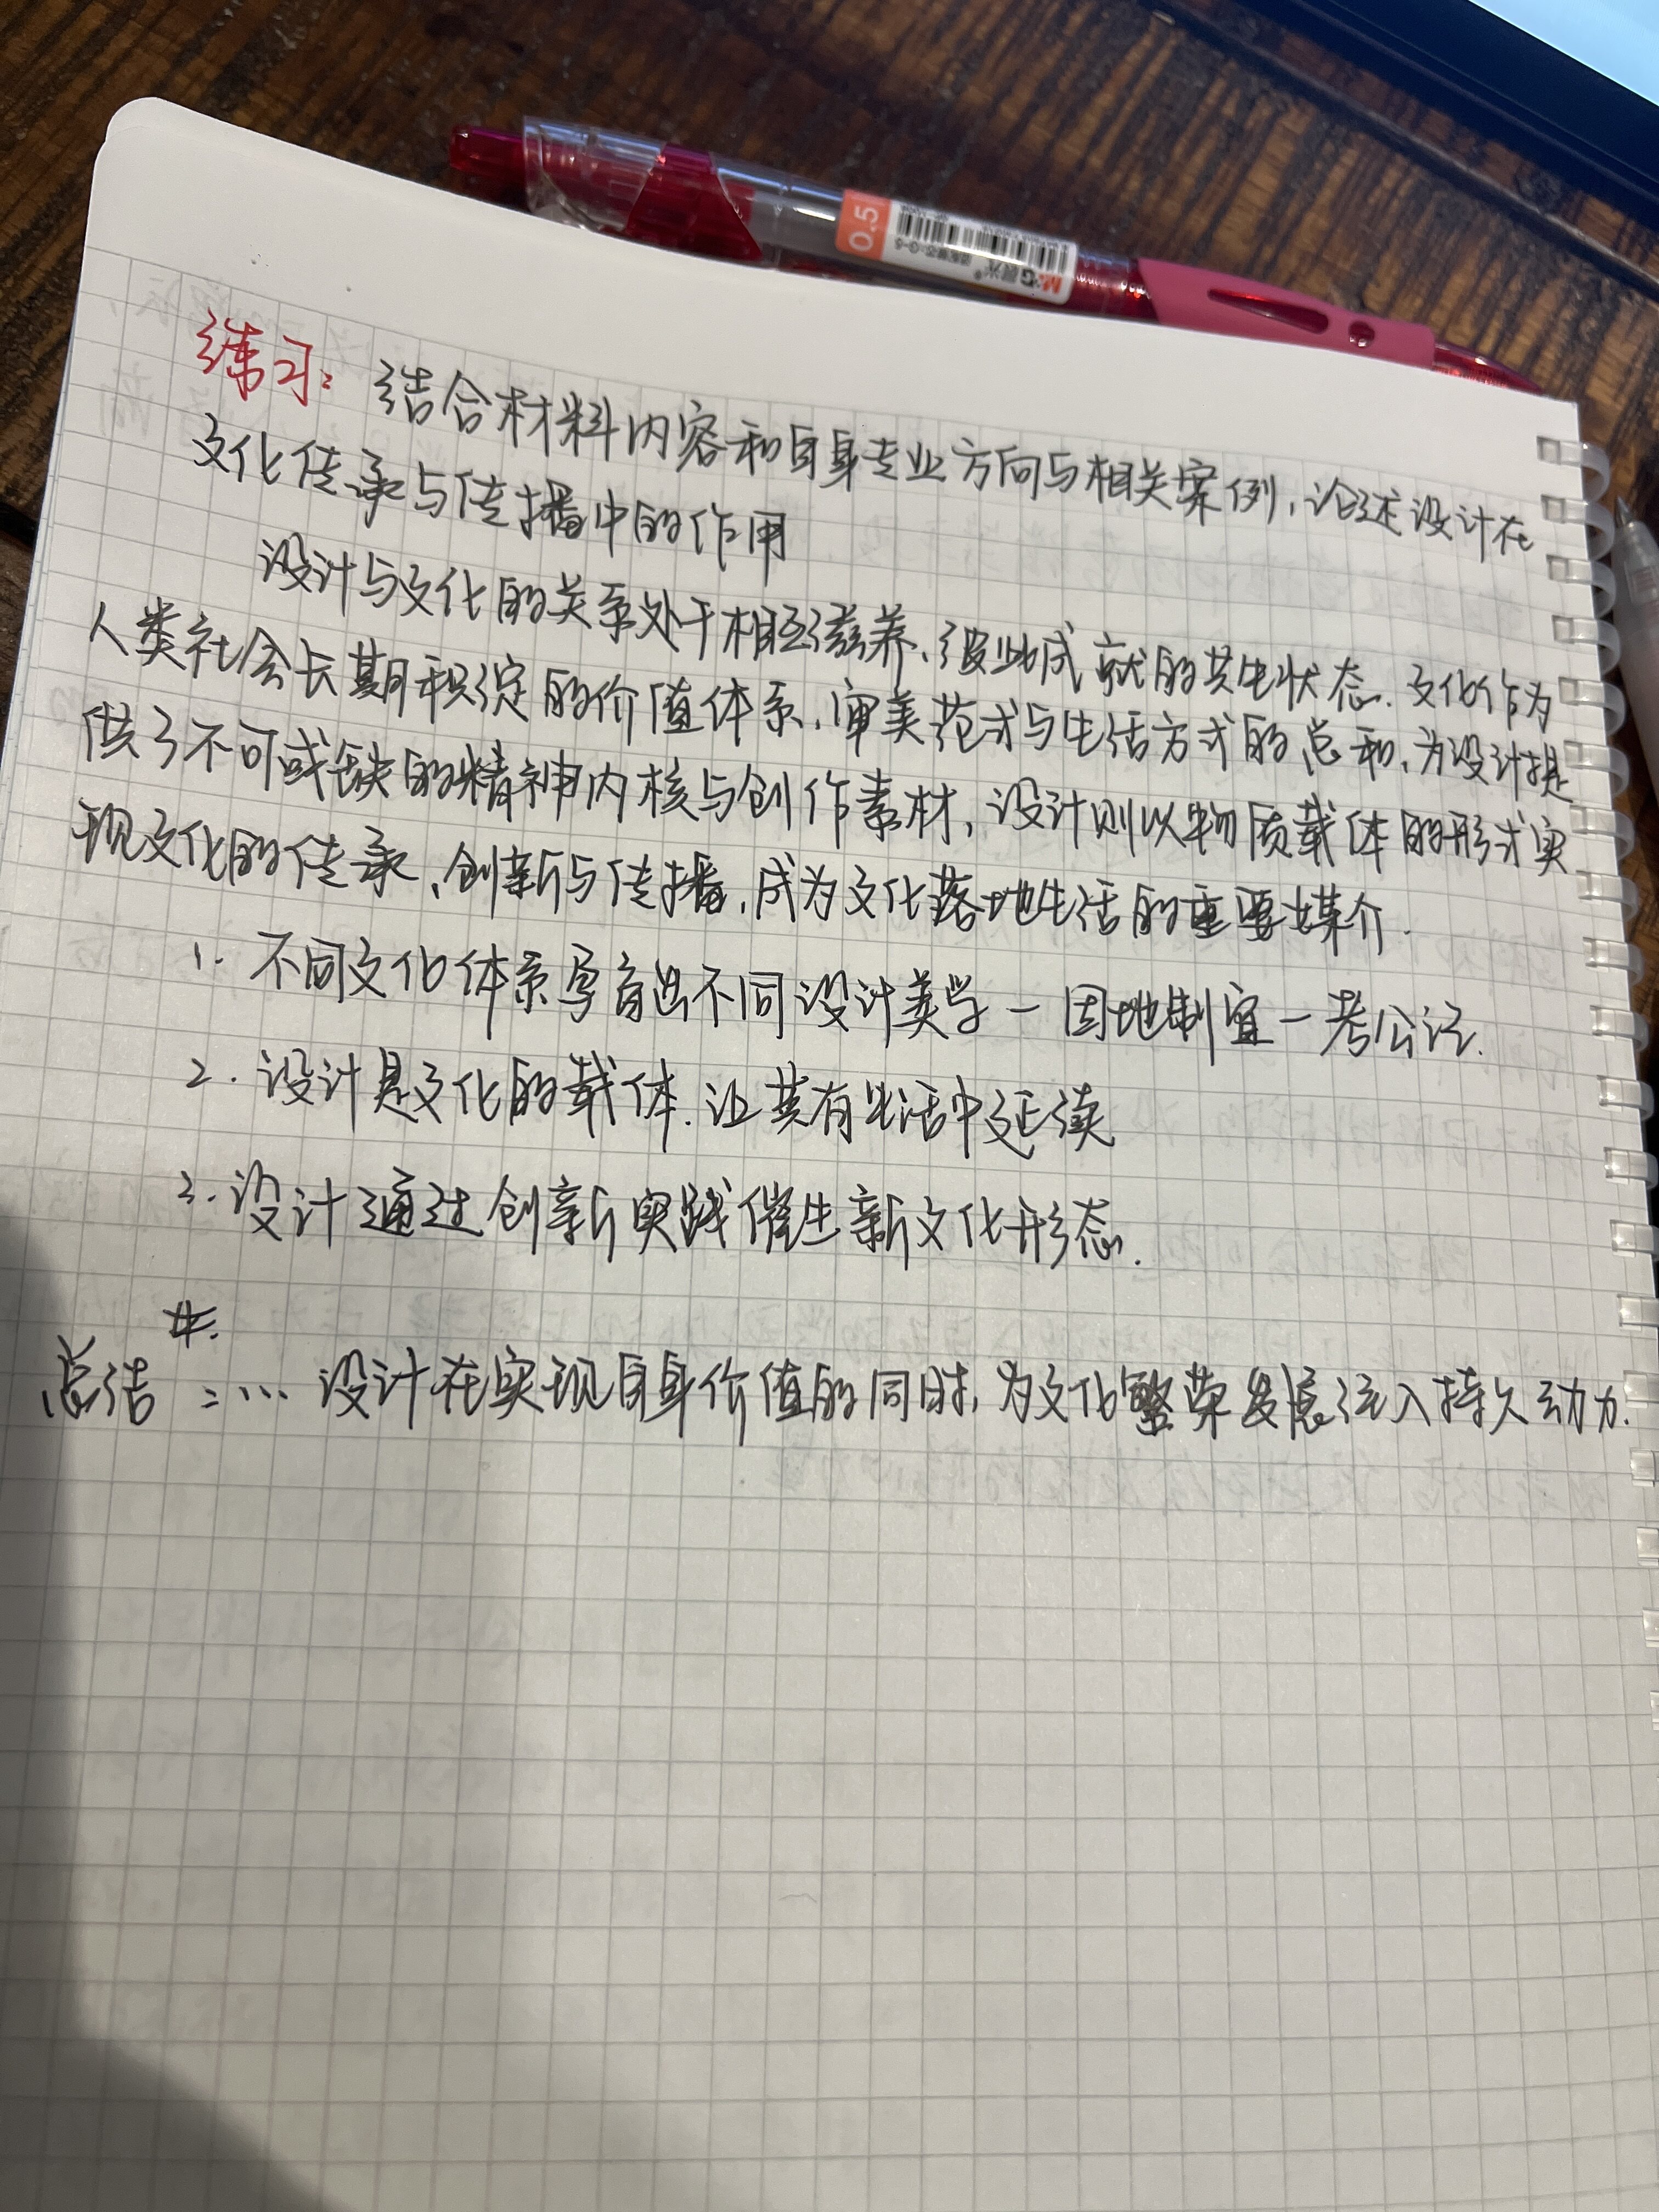 练习：结合材料内容和自身专业方向与相关案例，论述设计在
文化传承与传播中的作用
设计与文化的关系处于相互滋养、彼此成就的共生状态.文化作为
人类社会长期积淀的价值体系、审美范式与生活方式的总和，为设计提
供了不可或缺的精神内核与创作素材，设计则以物质载体的形式实
现文化的传承、创新与传播，成为文化落地生活的重要媒介.
1. 不同文化体系孕育出不同设计美学—因地制宜—考公记.
2. 设计是文化的载体.让其有生活中延续
3. 设计通过创新实践催生新文化形态.
#.
总结：… 设计在实现自身价值的同时，为文化繁荣发展注入持久动力.
0.5
M&G 晨光